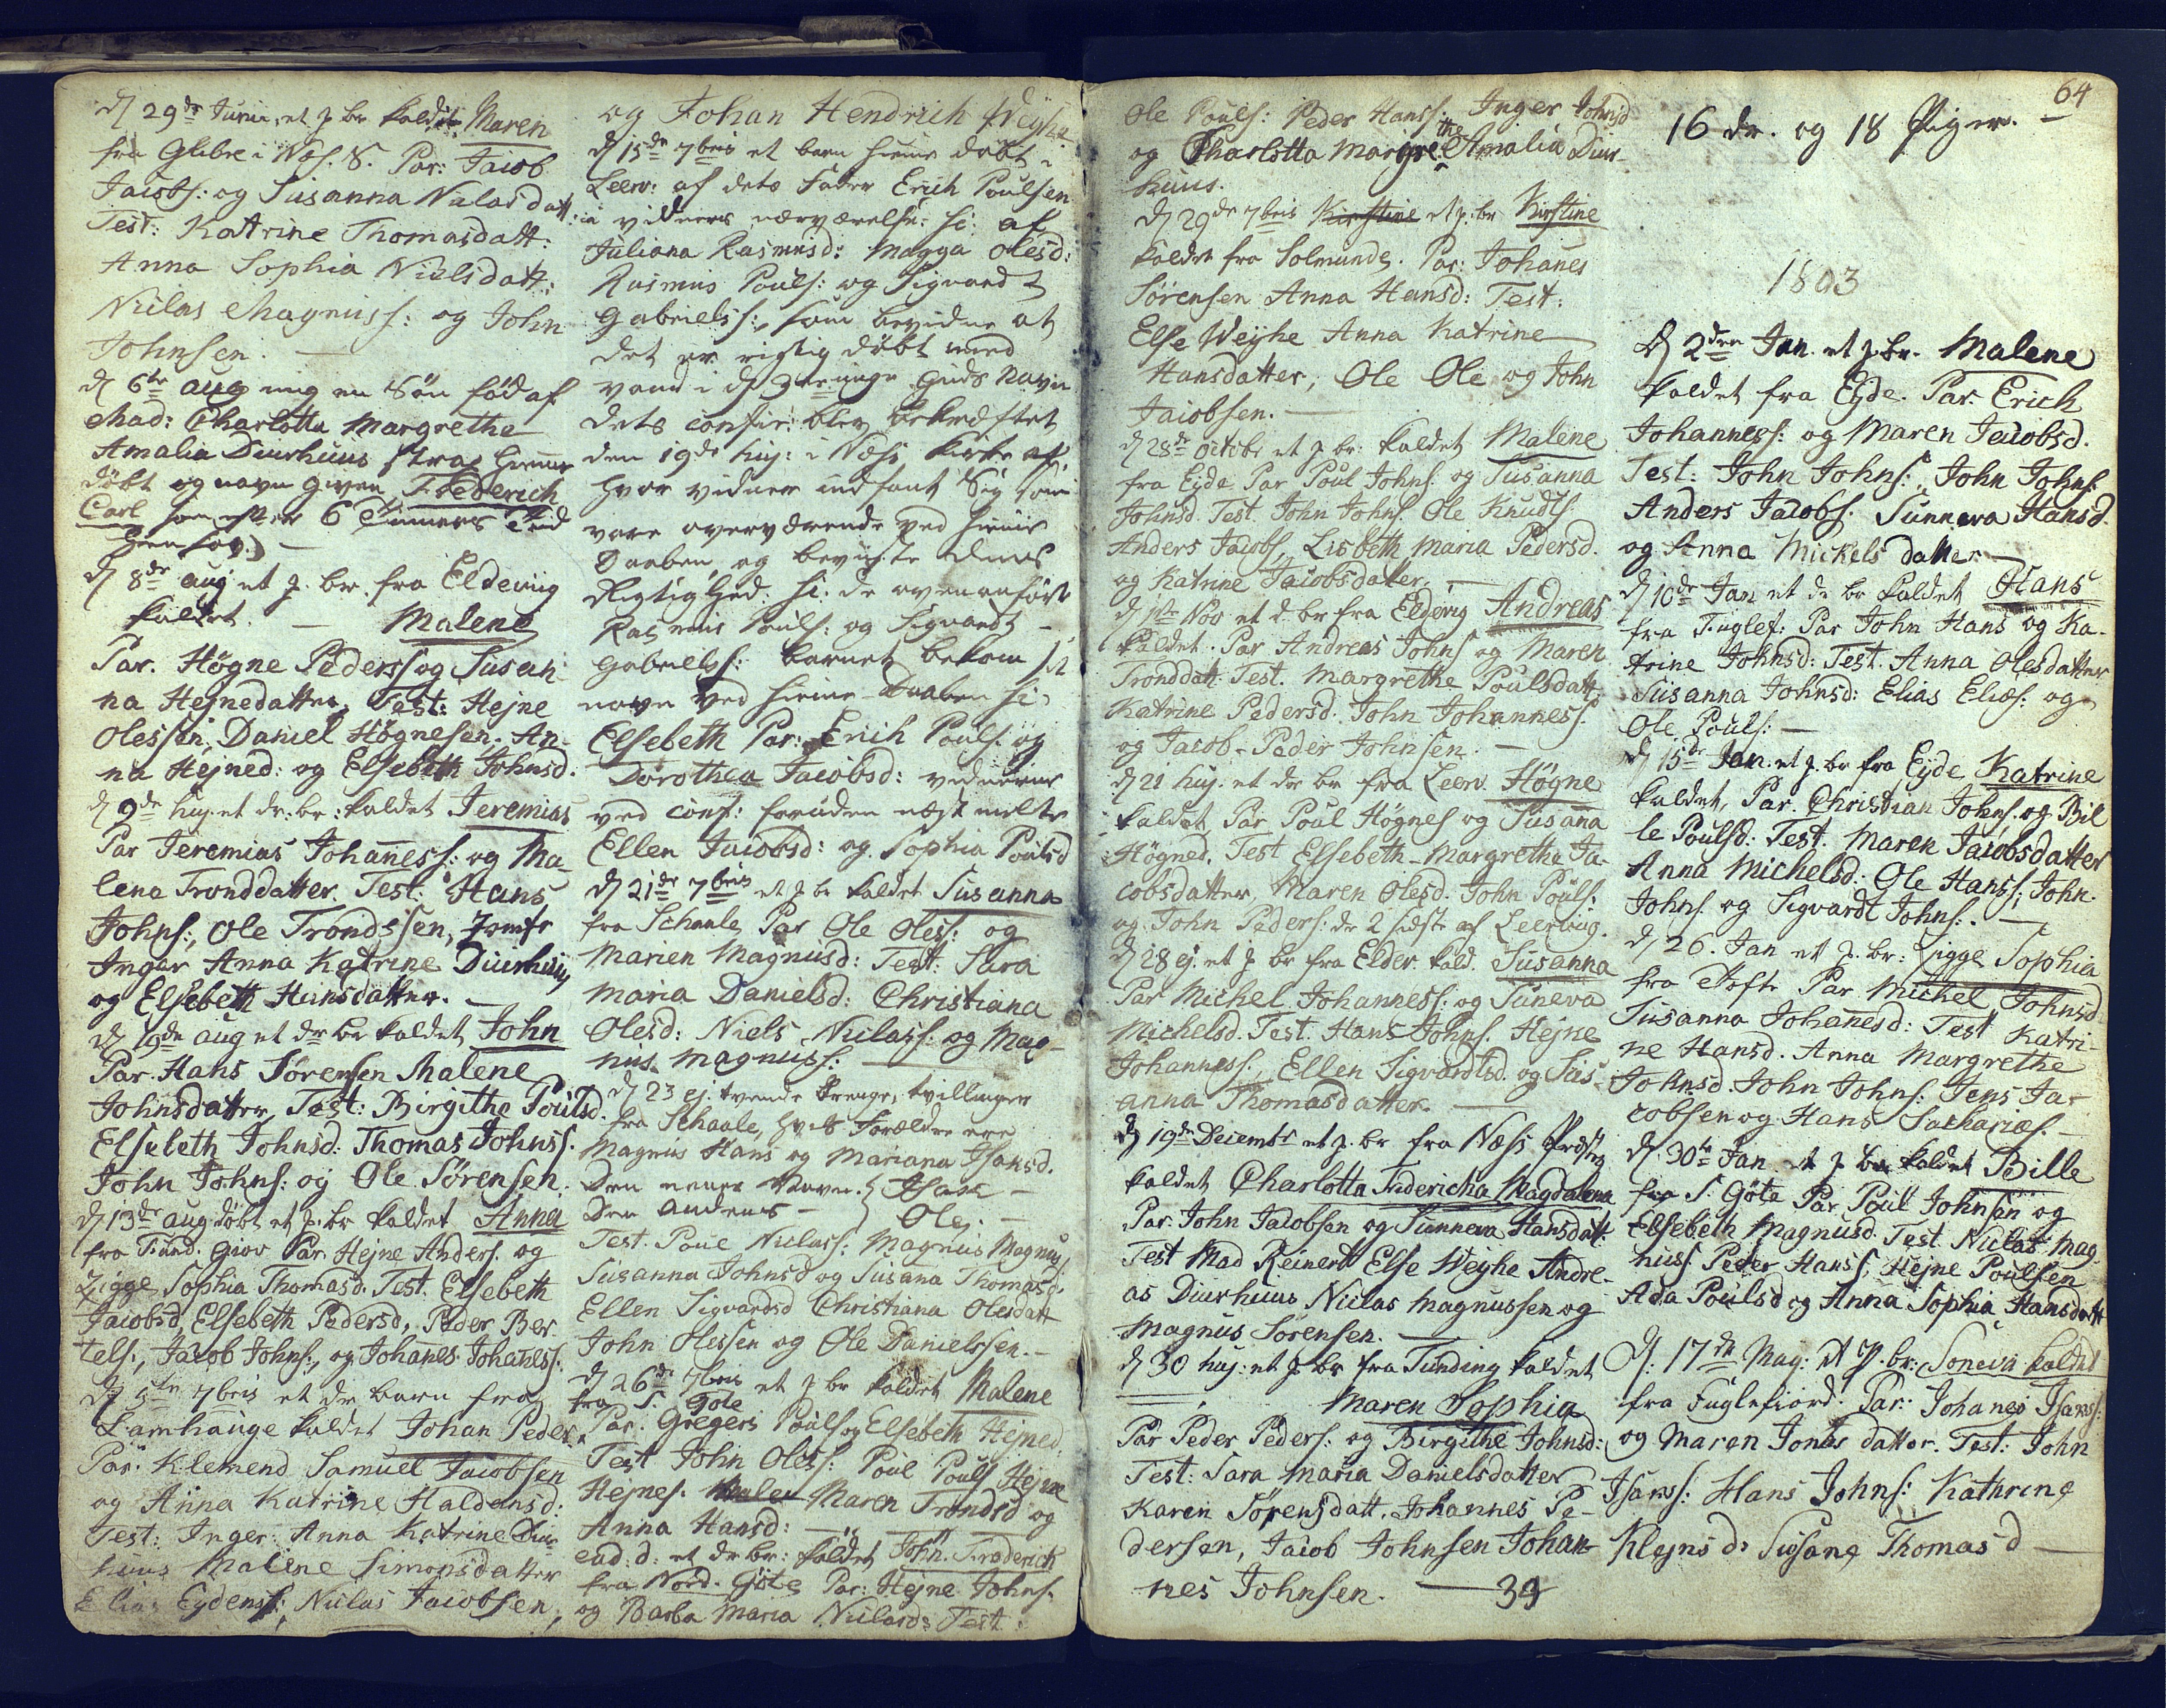 d 29de Junii, et p. br. kaldet Maren
fra Glibre i Næs. S. Par: Jacob
Jacobs: og Susanna Nialasdatt:
Test: Katrine Thomasdatt:
Anna Sophia Nielsdatt:
Niclas Magnuss: og John
Johnsen.
d 6te aug mig en Søn fød af
Mad: Charlotta Margrethe
Amalia Diurhuus strax hjemme
døbt og navn given Frederich
Carl som efter 6 Timers Tid
hensov.
d 8de aug et p. br. fra Eldeviig
kaldet. Malene
Par. Högne Peders og Susan
na Hejnedatter, Test: Hejne
Olessen, Daniel Högnesen. An-
na Hejned: og Elsebeth Johnsd.
d 9de huj. et dr: br: kaldet Jeremias
Par Jeremias Johaness: og Ma-
lena Tronddatter. Test. Hans
Johns:, Ole Trondssen, Jomfr
Inger Anna Katrine Diurhuus
og Elsebeth Hansdatter.
d 19de aug et dr br kaldet John
Par. Hans Sörensen Malene
Johnsdatter, Test: Birgithe Poulsd.
Elsebeth Johnsd. Thomas Johnss.
John Johns: og Ole Sörensen.
d 13de aug. døbt et p. br kaldet Anna
fra Fund. Giov Par. Hejne Anders. og
Zigge Sophia Thomasd. Test. Elsebeth
Jacobsd, Elsebeth Pedersd, Peder Ber
tels:, Jacob Johns:, og Johanes Johaness.
d 5te 7bris et dr barn fra
Lamhauge kaldet Johan Peder
Par. Klemend Samuel Jacobsen
og Anna Katrine Haldansd:
Test: Inger Anna Katrine Diur
huus Malene Simonsdatter
Elias Eydenss: Niclas Jacobsen,
og Johan Hendrich Weyhe
d 15de 7bris et barn hjemme døbt i
Leerv: af dets Fader Erich Poulsen
i vidners nærværelse: si: af
Juliana Rasmusd: Magga Olesd:
Rasmus Pouls: og Sigvardt
Gabrielss:, som bevidne at
det er rigtig døbt med
vand i d 3 enige Guds Navn
dets confir: blev bekræftet
den 19de huj: i Næss Kirke af
hvor vidner indfant Sig som
vare overværende ved hjeme
Daaben, og beviiste dens
Rigtighed. si. de ovenanførte
Rasmus Pouls: og Sigvardt
Gabrielss: barnet bekom sit
navn ved hieme-Daaben si:
Elsebeth Par: Erich Pouls. og
Dorothea Jacobsd: vidnerne
ved conf: foruden næst meldte
Ellen Jacobsd: og Sophia Poulsd
d 21de 7bris et p br kaldet Susanna
fra Schaale, Par Ole Oles: og
Marien Magnusd: Test: Sara
Maria Danielsd: Christiana
Olesd: Niels Niclass: og Mag-
nus Magnuss:
d 23 ej. tvende Drenge, tvillinger
fra Schaale, hvis Forældre ere
Magnus Hans og Mariana Isaksd.
Den eenes Navn: Isak
Den Andens Ole.
Test. Poue Niclass: Magnus Magnus,
Susanna Johnsd og Susana Thomasd.
Ellen Sigvardsd Christiana Olesdatt
John Olessen og Ole Danielssen.
d 26de 7bris et p br kaldet Malene
fra S. Gøte
Par: Gregers Pouls og Elsebeth Hejned.
Test John Oless: Poul Pouls Hejne
Hejnes. Maren Trondsd og
Anna Hansd:
ead: d: et dr br: kaldet John Frederich
fra Nord-Gøte Par: Hejne Johns.
og Barba Maria Niclasd: Test:
Ole Pouls: Peder Hanss. Inger Johnsd
og Charlotta Margrethe Amalia Diur-
huus.
d 29de 7bris Kirstine et p. br Kirstine
kaldet fra Solmunde. Par: Johanes
Sörensen Anna Hansd: Test:
Else Weyhe Anna Katrine
Hansdatter, Ole Ole og John
Jacobsen.
d 28de Octobr et p br. kaldet Malene
fra Eyde Par Poul Johns: og Susanna
Johnsd. Test John Johns. Ole Knuds.
Anders Jacobs, Lisbeth Maria Pedersd.
og Katrine Jacobsdatter,
d 1ste Nov et d. br fra Eldevig Andreas
kaldet. Par Andreas Johns og Maren
Tronddatt. Test. Margrethe Poulsdatt.
Katrine Pedersd. John Johanness.
og Jacob-Peder Johnsen.
d 21 huj. et dr br fra Leerv. Högne
kaldet Par Poul Högnes og Susanna
Högned. Test Elsebeth-Margrethe Ja-
cobsdatter, Maren Olesd. John Pouls:
og John Peders: de 2 sidste af Leerviig.
d 28 ej. et p br fra Elder. kald. Susanna
Par Michel Johanness: og Suneva
Michelsd. Test. Hans Johns. Hejne
Johanness., Ellen Sigvardtsd. og Sus-
anna Thomasdatter.
d 19de Decembr et p. br fra Næss Præsteg
kaldet Charlotta Fridericha Magdalena
Par. John Jacobsen og Sunneva Hansdatt.
Test Mad Reinert Else Weyhe Andre-
as Diurhuus Niclas Magnussen og
Magnus Sörensen.
d 30 huj: et p br fra Funding kaldet
Maren Sophia
Par Peder Peders: og Birgithe Johnsd:
Test: Sara Maria Danielsdatter
Karen Sörensdatt. Johannes Pe-
dersen, Jacob Johnsen Johan-
nes Johnsen. 34
64
16 dr. og 18 Piger.
1803
d 2den Jan. et p. br. Malene
kaldet fra Eyde. Par. Erich
Johanness: og Maren Jacobsd.
Test: John Johns:, John Johns.
Anders Jacobs. Sunneva Hansd.
og Anna Mickelsdatter.
d 10de Jan et dr br kaldet Hans
fra Fuglef: Par John Hans og Ka-
trine Johnsd: Test. Anna Olesdatter
Susanna Johnsd: Elias Elias. og
Ole Pouls:
d 15de Jan. et p. br fra Eyde Katrine
kaldet, Par. Christian Johns. og Bil
le Poulsd: Test. Maren Jacobsdatter
Anna Michelsd: Ole Hanss; John
Johns. og Sigvardt Johns.
d 26. Jan et p. br: Zigge Sophia
fra Tofte Par Michel Johnsd
Susanna Johanesd: Test Katri-
ne Hansd. Anna Margrethe
Johnsd. John Johns: Jens Ja-
cobsen og Hans Sacharias.
d 30te Jan et p br kaldet Bille
fra S. Göta Par Poul Johnsön og
Elsebeth Magnusd. Test Niclas Mag-
nuss. Peder Hanss, Hejne Poulsen
Ada Poulsd og Anna Sophia Hansdatt
d: 17de Mag: et P. br: Soneva kaldet
fra Fuglefiord. Par: Johanes Isaks:
og Maren Jonas datter. Test: John
Isaks: Hans Johns: Kathrine
Klejns d. Susane Thomas d